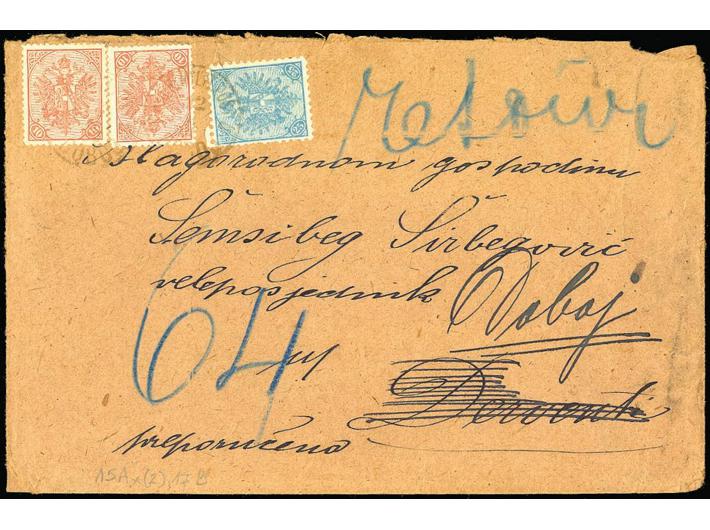 10 10 10 10 25 25
Retour
Blagorodnom gospodinu
Šemsibeg Širbegović
veleposjednik
Doboj
64
u
Derventi
preporučeno
15A, (2), 17 B